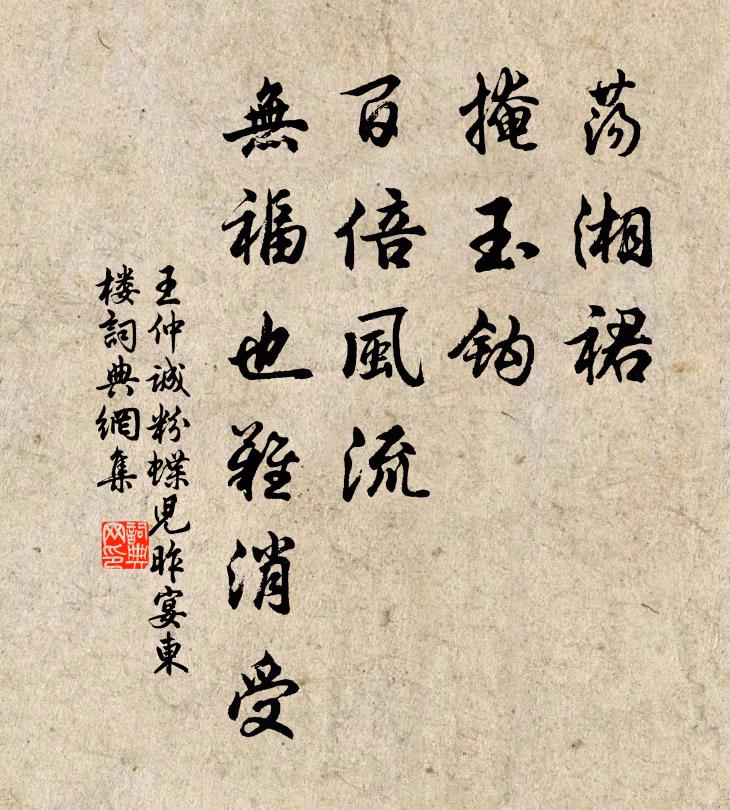 蕩湘裙
掩玉鈎
百倍風流
無福也難消受
王仲誠粉蝶兒昨宴東
楼詞典網集
詞典网印